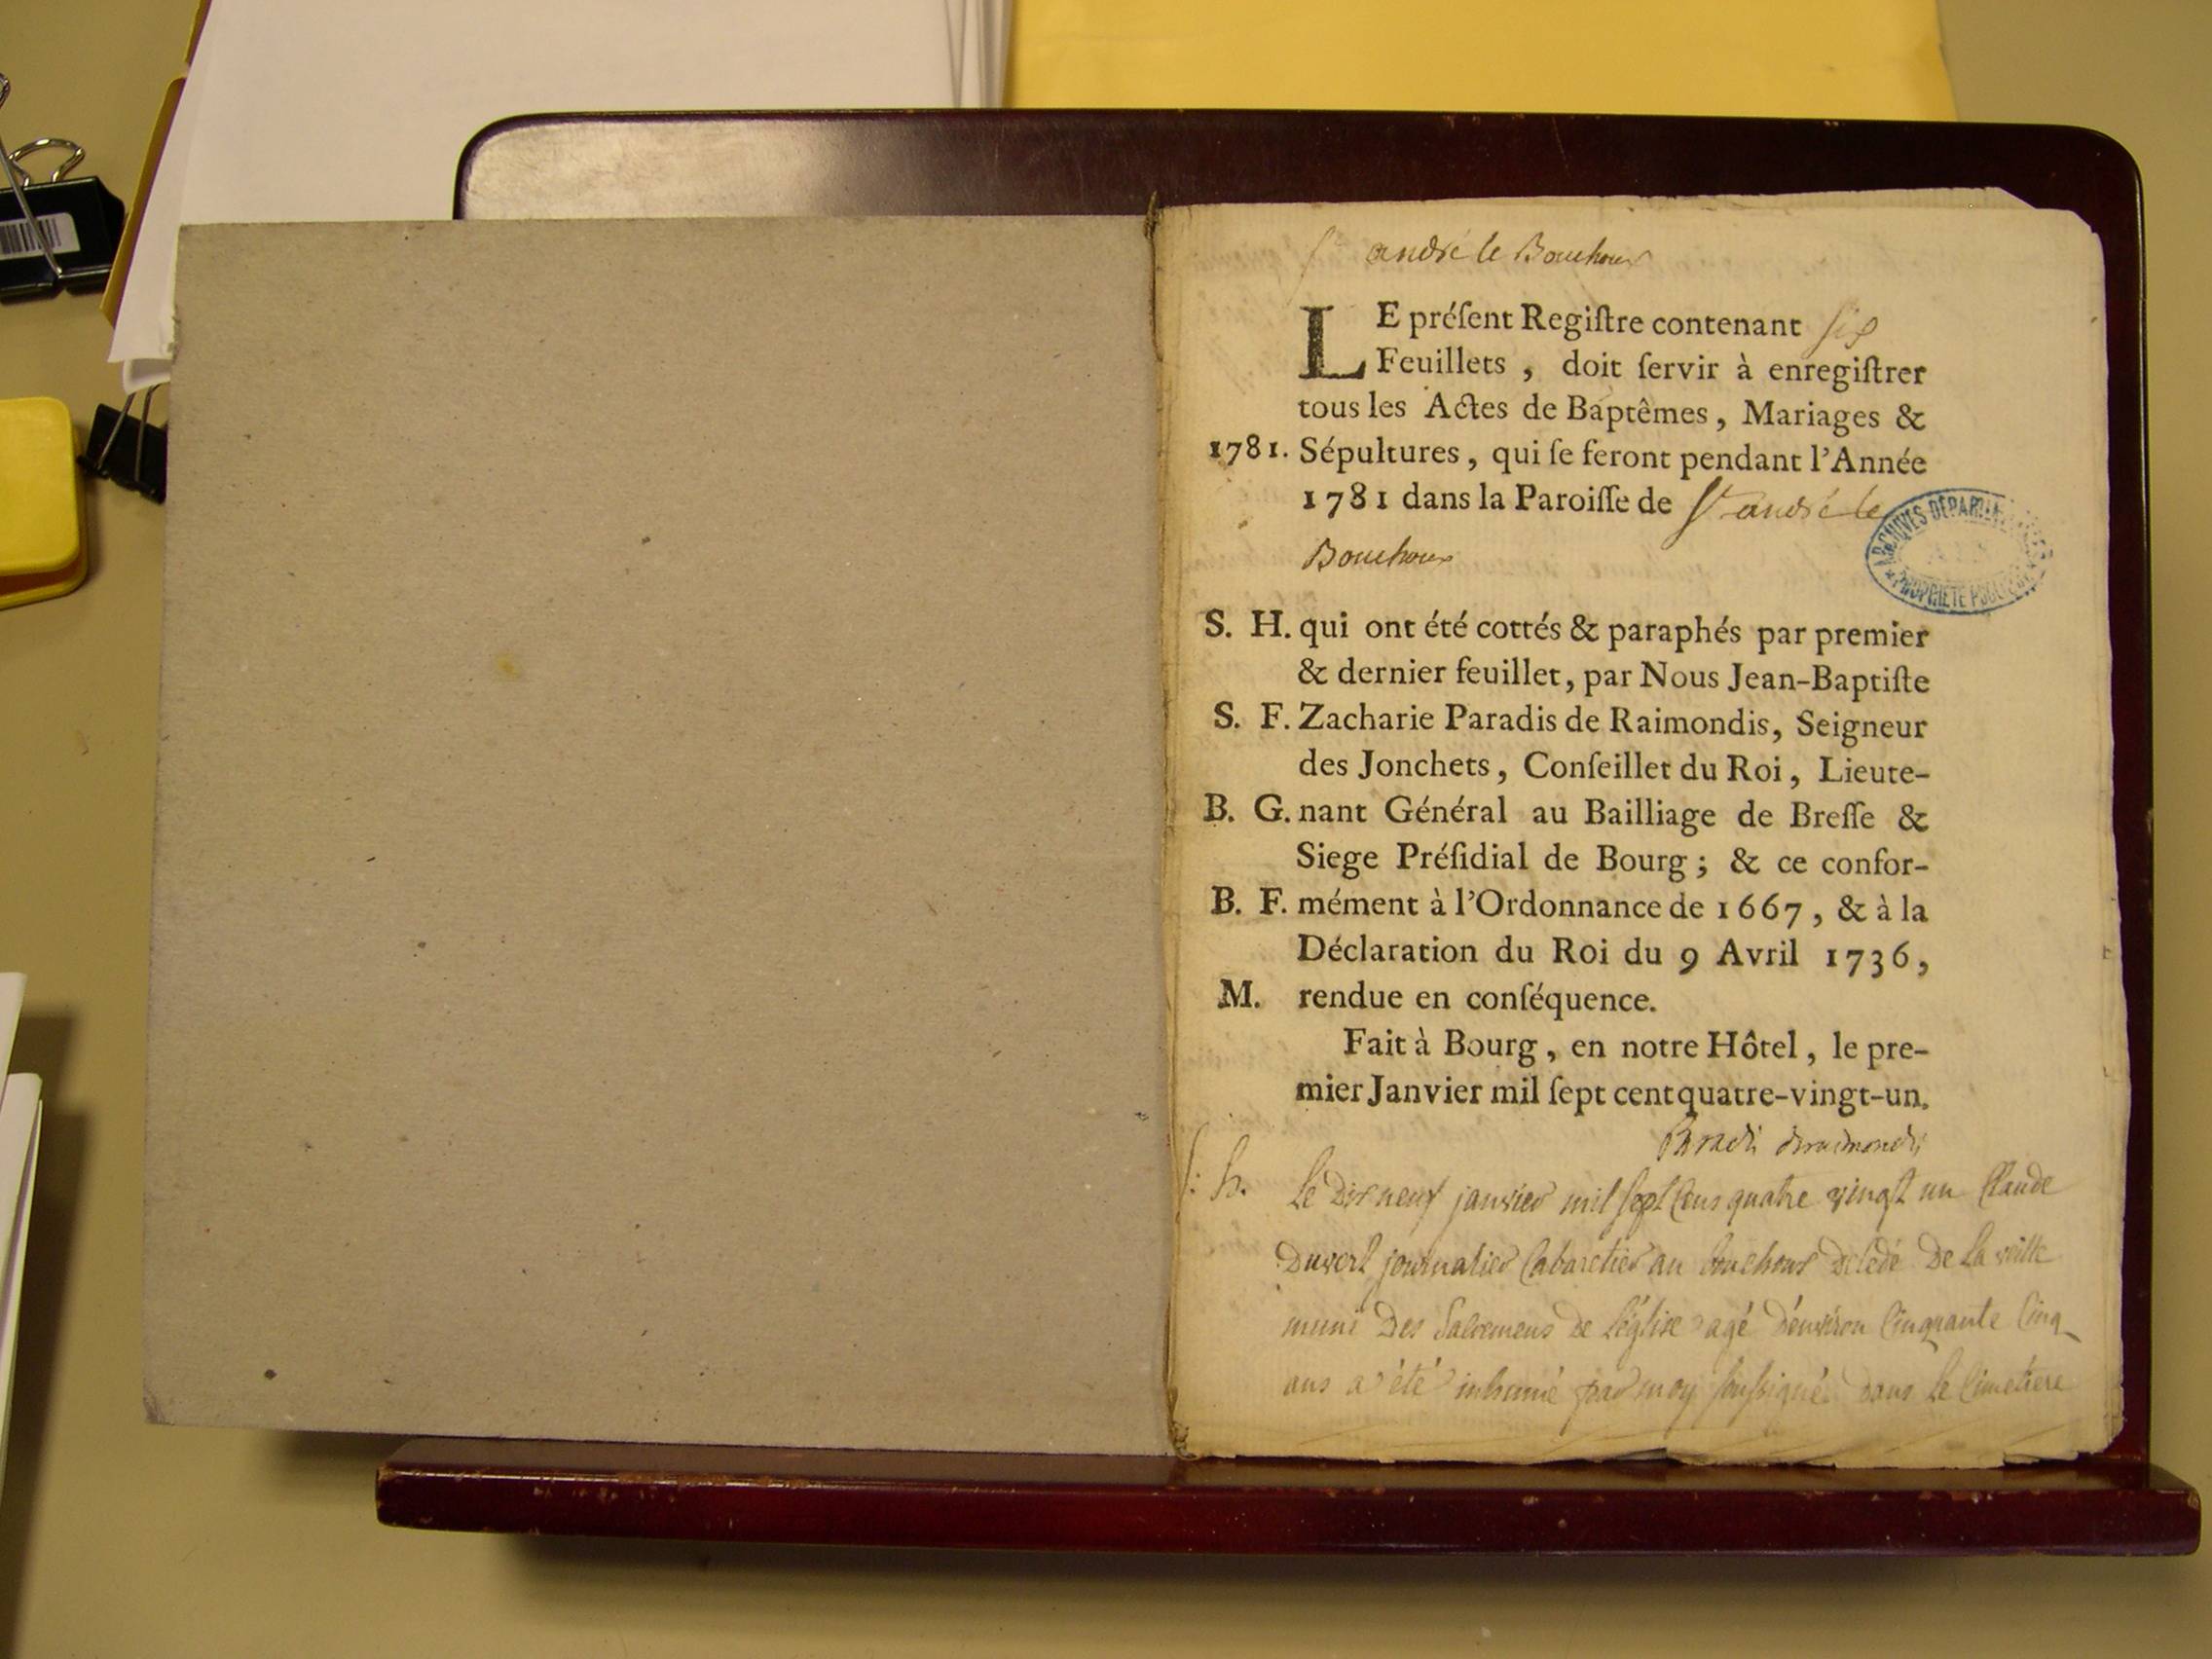 St andré le Bouchoux
LE préſent Regiſtre contenant six
Feuillets, doit ſervir à enregiſtrer
tous les Actes de Baptêmes, Mariages &
1781. Sépultures, qui ſe feront pendant l'Année
1781 dans la Paroiſſe de St andré le
Bouchoux
ARCHIVES DÉPARTEMENTALES
AIN
PROPRIÉTÉ PUBLIQUE
S. H. qui ont été cottés & paraphés par premier
& dernier feuillet, par Nous Jean-Baptiſte
S. F. Zacharie Paradis de Raimondis, Seigneur
des Jonchets, Conſeillet du Roi, Lieute-
B. G. nant Général au Bailliage de Breſſe &
Siege Préſidial de Bourg; & ce confor-
B. F. mément à l'Ordonnance de 1667, & à la
Déclaration du Roi du 9 Avril 1736,
M. rendue en conſéquence.
Fait à Bourg, en notre Hôtel, le pre-
mier Janvier mil ſept cent quatre-vingt-un.
Paradis deraimondis
s: h. Le Dix neuf janvier mil sept Cens quatre vingt un Claude
Duvert journalier Cabaretier au bouchoux Décédé De La veille
muni Des Sacremens De L'église agé D'environ Cinquante Cinq
ans a été inhumé par moy soussigné dans Le Cimetiere